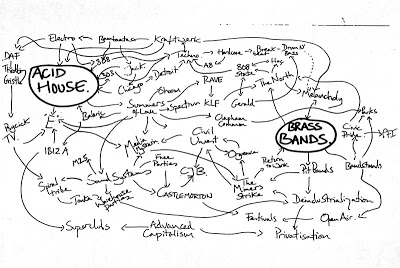 Electro
Bambaataa
Kraftwerk
DAF
Throbbing
Gristle
ACID
HOUSE.
388
303
Jack
Chicago
Detroit
Techno
Hardcore
Break
beat
Drum N'
Bass
A8
808
State
Hoy
The North
Melancholy
RAVE
Shoom
Balearic
Summer
of Love
Spectrum
KLF
Gerald
Clapham
Common
Psychick
TV
1812 A
Media
Civil
Unrest
BRASS
BANDS.
Civic
Pride
Parks
PFI
M25
Free
Parties
Orgreave
Return
to Work
Pit Bands
Bandstands
Spiral
tribe
Sound Systems
CJB
The
Miners
Strike
Tonka
Warehouse
parties
CASTLEMORTON
Deindustrialization
Superclubs
Advanced
Capitalism
Festivals
Open Air.
Privatisation